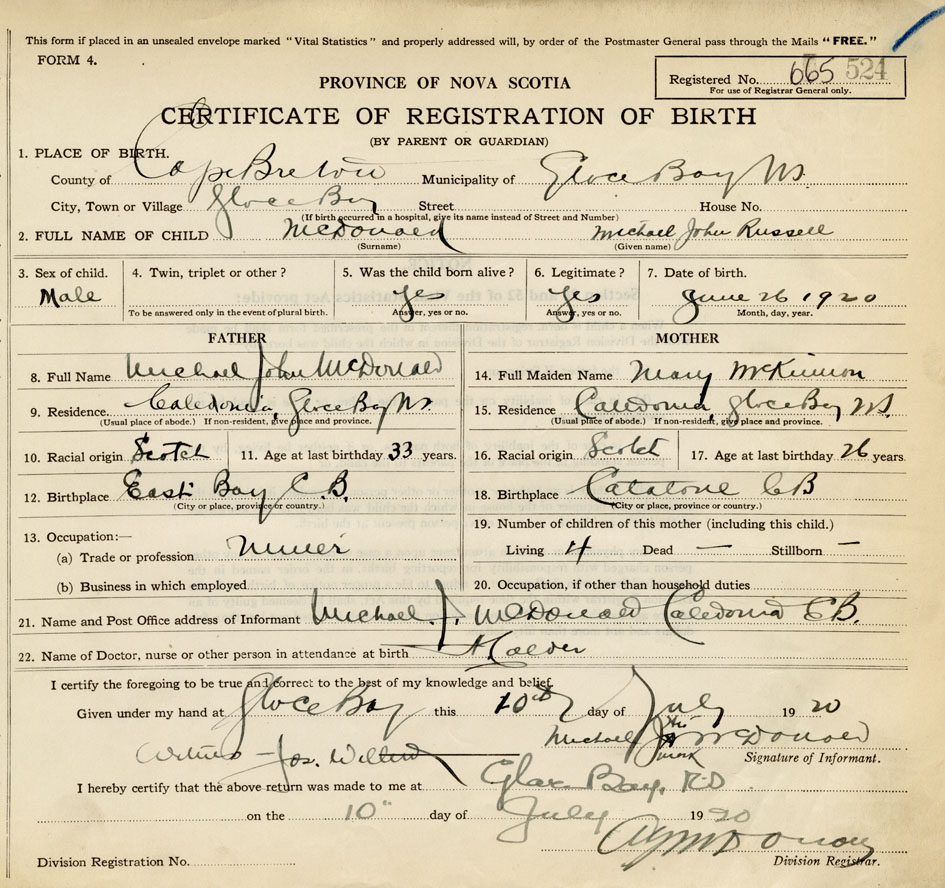 This form if placed in an unsealed envelope marked "Vital Statistics" and properly addressed will, by order of the Postmaster General pass through the Mails "FREE."
FORM 4.
Registered No. 665 524
For use of Registrar General only.
PROVINCE OF NOVA SCOTIA
CERTIFICATE OF REGISTRATION OF BIRTH
(BY PARENT OR GUARDIAN)
1. PLACE OF BIRTH.
County of Cape Breton Municipality of Glace Bay NS.
City, Town or Village Glace Bay Street House No.
(If birth occurred in a hospital, give its name instead of Street and Number)
2. FULL NAME OF CHILD McDonald Michael John Russell
(Surname) (Given name)
3. Sex of child. 4. Twin, triplet or other? 5. Was the child born alive? 6. Legitimate? 7. Date of birth.
Male yes yes June 26 1920
To be answered only in the event of plural birth. Answer, yes or no. Answer, yes or no. Month, day, year.
FATHER MOTHER
8. Full Name Michael John McDonald 14. Full Maiden Name Mary McKinnon
9. Residence Caledonia, Glace Bay NS. 15. Residence Caledonia, Glace Bay NS
(Usual place of abode.) If non-resident, give place and province. (Usual place of abode.) If non-resident, give place and province.
10. Racial origin Scotch 11. Age at last birthday 33 years. 16. Racial origin Scotch 17. Age at last birthday 26 years.
12. Birthplace East Bay C.B. 18. Birthplace Catalone CB
(City or place, province or country.) (City or place, province or country.)
19. Number of children of this mother (including this child.)
13. Occupation:—
(a) Trade or profession Miner Living 4 Dead — Stillborn —
(b) Business in which employed 20. Occupation, if other than household duties
21. Name and Post Office address of Informant Michael J. McDonald Caledonia C.B.
22. Name of Doctor, nurse or other person in attendance at birth
I certify the foregoing to be true and correct to the best of my knowledge and belief.
Given under my hand at Glace Bay this 10th day of July 1920
Michael J his X mark McDonald
Witness Jos.
Signature of Informant.
I hereby certify that the above return was made to me at Glace Bay,
on the 10" day of July 1920
Division Registration No. Division Registrar.